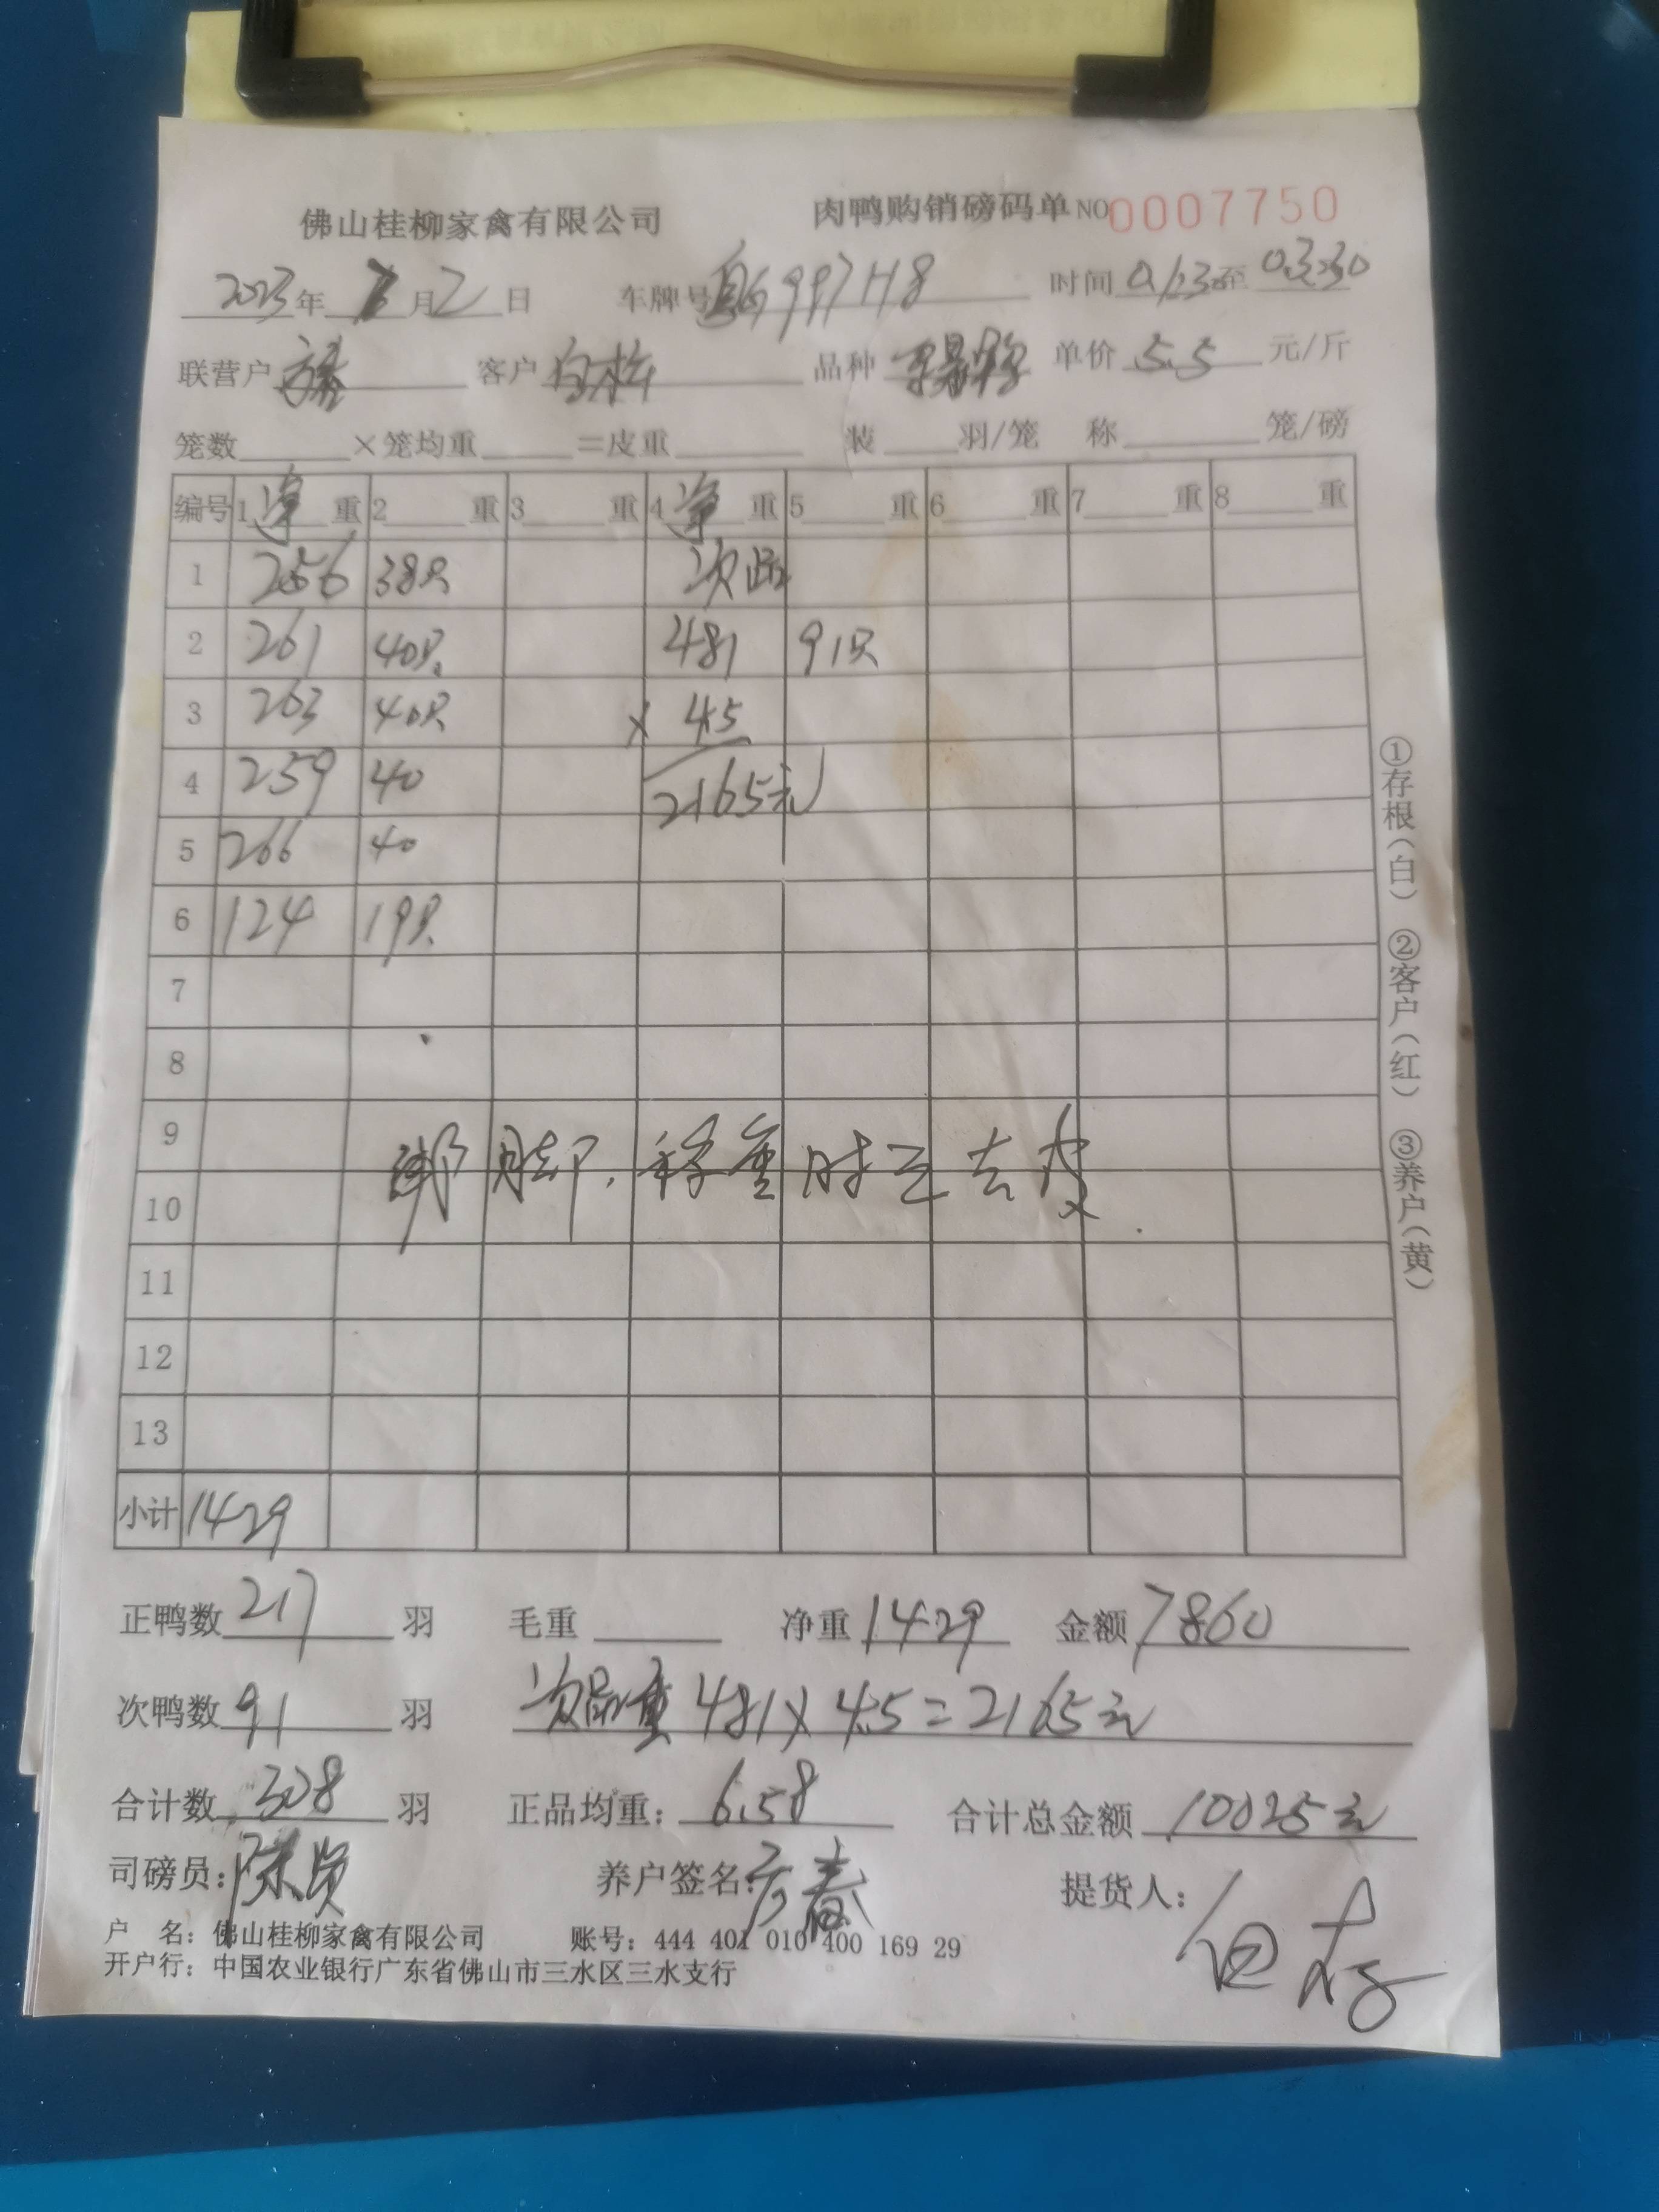 佛山桂柳家禽有限公司 肉鸭购销磅码单 NO 0007750
2023年 月2日 车牌号 997H8 时间 至
联营户 客户 品种 单价 5.5 元/斤
笼数 ×笼均重 =皮重 装 羽/笼 称 笼/磅
编号 1净重 2重 3重 4净重 5重 6重 7重 8重
1 256 38只 次品
2 261 40只 481 91只
3 263 40只 × 4.5
4 259 40 2165元
5 266 40
6 124 19只
7
8
9
绑脚,称重时已去皮
10
11
12
13
小计 1429
正鸭数 217 羽 毛重 净重 1429 金额 7860
次鸭数 91 羽 次品重 481×4.5=2165元
合计数 308 羽 正品均重: 6.58 合计总金额 10025元
司磅员: 养户签名: 提货人:
户 名: 佛山桂柳家禽有限公司 账号: 444 401 010 400 169 29
开户行: 中国农业银行广东省佛山市三水区三水支行
①存根(白) ②客户(红) ③养户(黄)